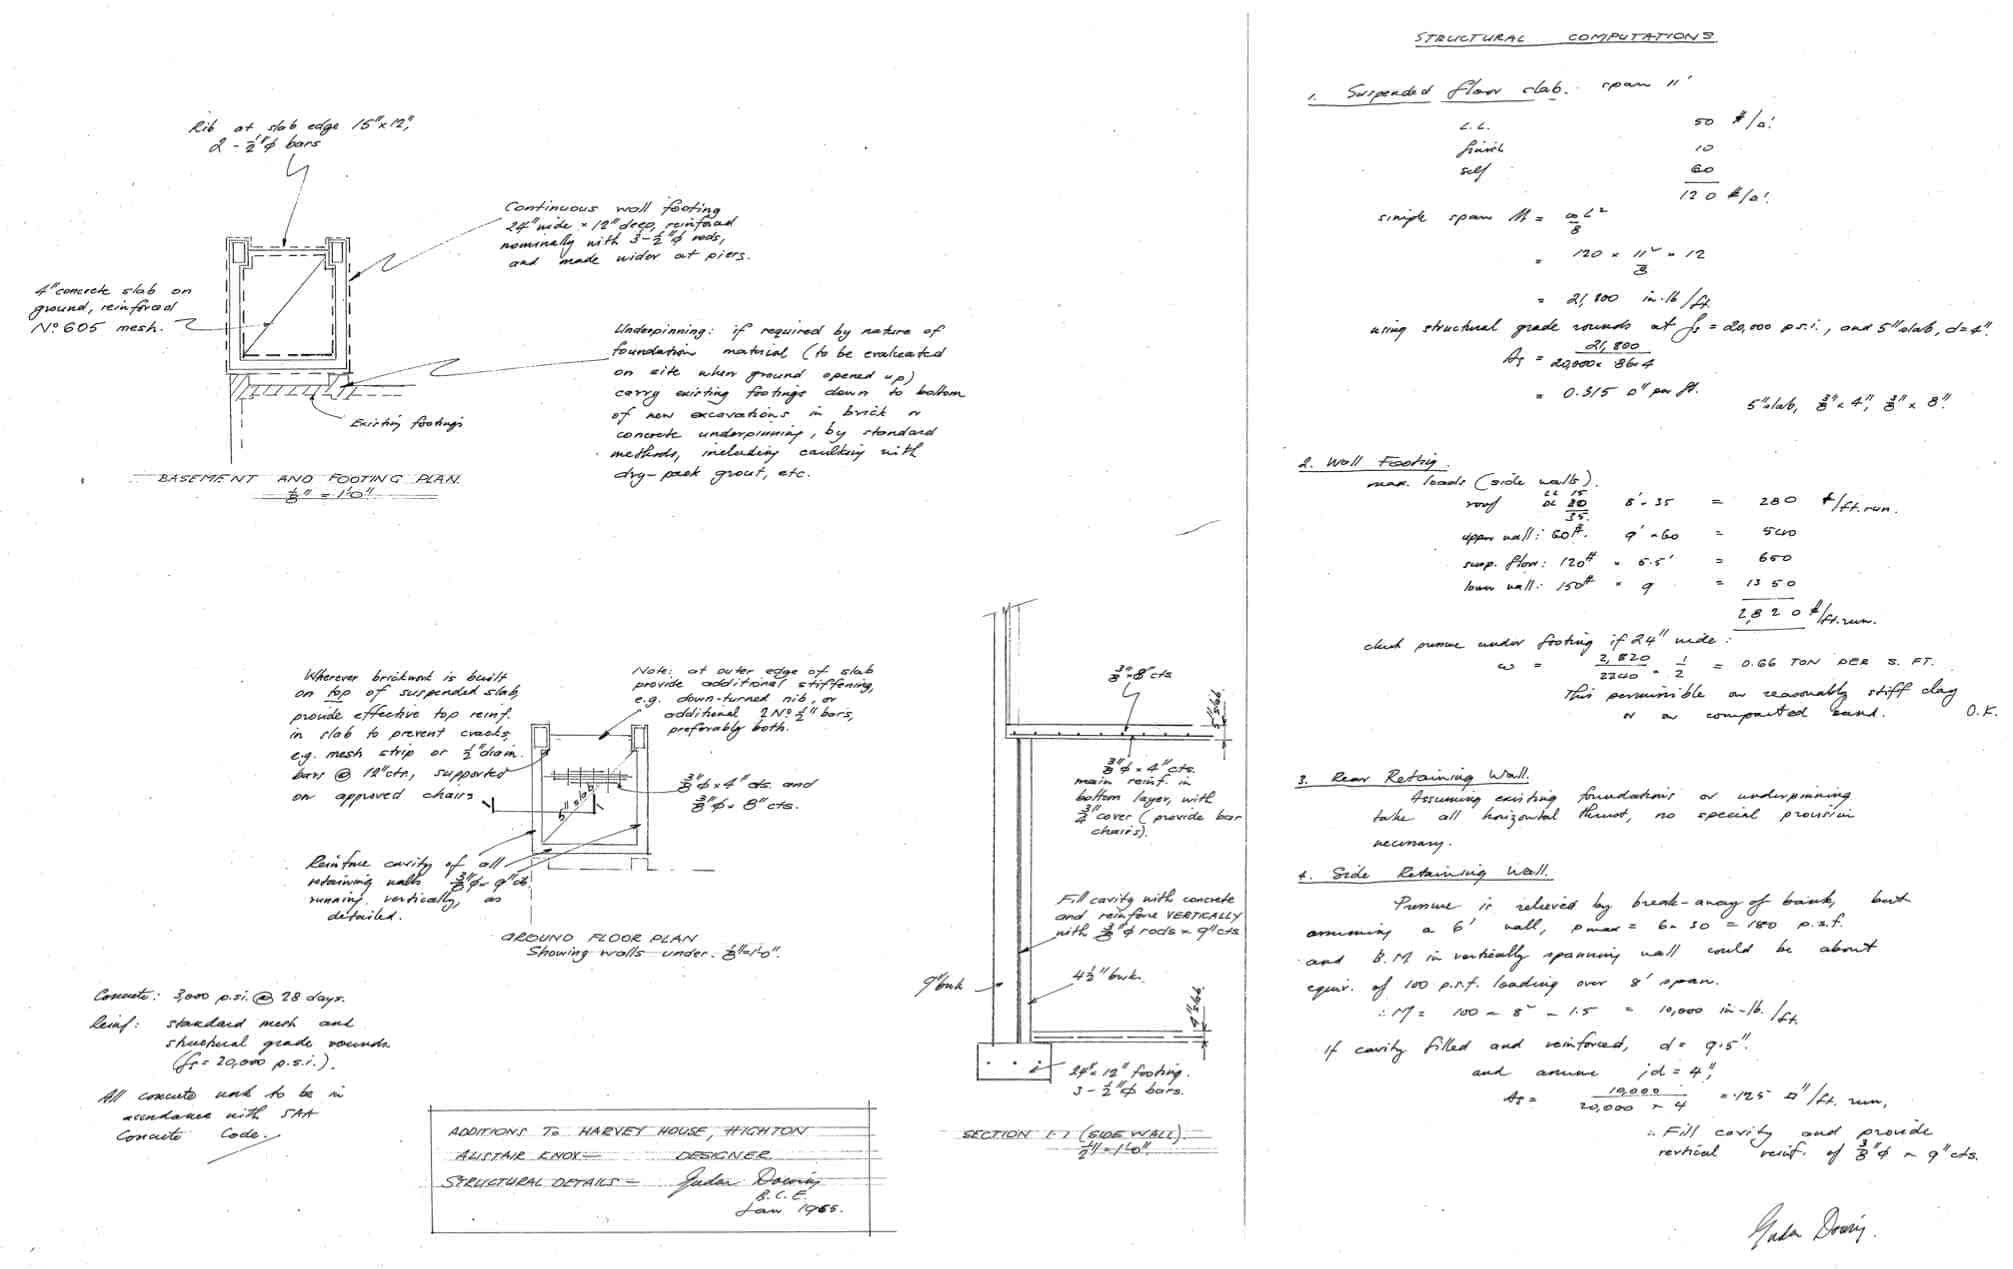 Rib at slab edge 15"x12",
2 - ½"ϕ bars
Continuous wall footing
24" wide × 12" deep, reinforced
nominally with 3-½"ϕ rods,
and made wider at piers.
4" concrete slab on
ground, reinforced
Nº 605 mesh.
Underpinning: if required by nature of
foundation material (to be evaluated
on site when ground opened up)
carry existing footings down to bottom
of new excavations in brick or
concrete underpinning, by standard
methods, including caulking with
dry-pack grout, etc.
Existing footings
BASEMENT AND FOOTING PLAN.
⅛" = 1'-0"
Wherever brickwork is built
on top of suspended slab,
provide effective top reinf.
in slab to prevent cracks,
e.g. mesh strip or ½" diam.
bars @ 12" ctrs, supported
on approved chairs
Note: at outer edge of slab
provide additional stiffening,
e.g. down-turned rib, or
additional 2 Nº ½" bars,
preferably both.
5" slab
⅜"ϕ × 4" cts. and
⅜"ϕ × 8" cts.
Reinforce cavity of all
retaining walls ⅜"ϕ × 9" cts
running vertically, as
detailed.
GROUND FLOOR PLAN
Showing walls under. ⅛"=1'-0".
Concrete: 3,000 p.s.i. @ 28 days.
Reinf: standard mesh and
structural grade rounds
(fs = 20,000 p.s.i.).
All concrete work to be in
accordance with SAA
Concrete Code.
⅜" × 8" cts
5" slab
⅜"ϕ × 4" cts.
main reinf. in
bottom layer, with
¾" cover (provide bar
chairs).
Fill cavity with concrete
and reinforce VERTICALLY
with ⅜"ϕ rods × 9" cts
9" brick
4½" brick.
4" slab
24" × 12" footing.
3 - ½"ϕ bars.
SECTION 1-1 (SIDE WALL).
½" = 1'-0".
ADDITIONS TO HARVEY HOUSE, HIGHTON
ALISTAIR KNOX — DESIGNER
STRUCTURAL DETAILS —
B.C.E.
STRUCTURAL COMPUTATIONS
1. Suspended floor slab. span 11'
L.L. 50 #/□'
finish 10
self 60
120 #/□'
simple span M = ωL²/8
= 120 × 11² × 12 / 8
= 21,800 in-lb/ft.
using structural grade rounds at fs = 20,000 p.s.i., and 5" slab, d=4".
As = 21,800 / 20,000 × ·86×4
= 0.315 □" per ft.
5" slab, ⅜" × 4", ⅜" × 8".
2. Wall Footing.
max. loads (side walls).
roof LL 15 DL 20 35. 8' × 35 = 280 #/ft. run.
upper wall: 60#. 9' × 60 = 540
susp. floor: 120# × 5.5' = 650
lower wall: 150# × 9 = 1350
2,820 #/ft. run.
check pressure under footing if 24" wide:
ω = 2,820/2240 × 1/2 = 0.66 TON PER S. FT.
This permissible on reasonably stiff clay
or on compacted sand. O.K.
3. Rear Retaining Wall.
Assuming existing foundations or underpinning
take all horizontal thrust, no special provision
necessary.
4. Side Retaining Wall.
Pressure is relieved by break-away of bank, but
assuming a 6' wall, pmax = 6 × 30 = 180 p.s.f.
and B.M in vertically spanning wall could be about
equiv. of 100 p.s.f. loading over 8' span.
∴ M = 100 × 8² × 1.5 = 10,000 in-lb./ft.
If cavity filled and reinforced, d = 9.5".
and assume jd = 4",
As = 10,000 / 20,000 × 4 = ·125 □"/ft. run.
∴ Fill cavity and provide
vertical reinf. of ⅜"ϕ × 9" cts.